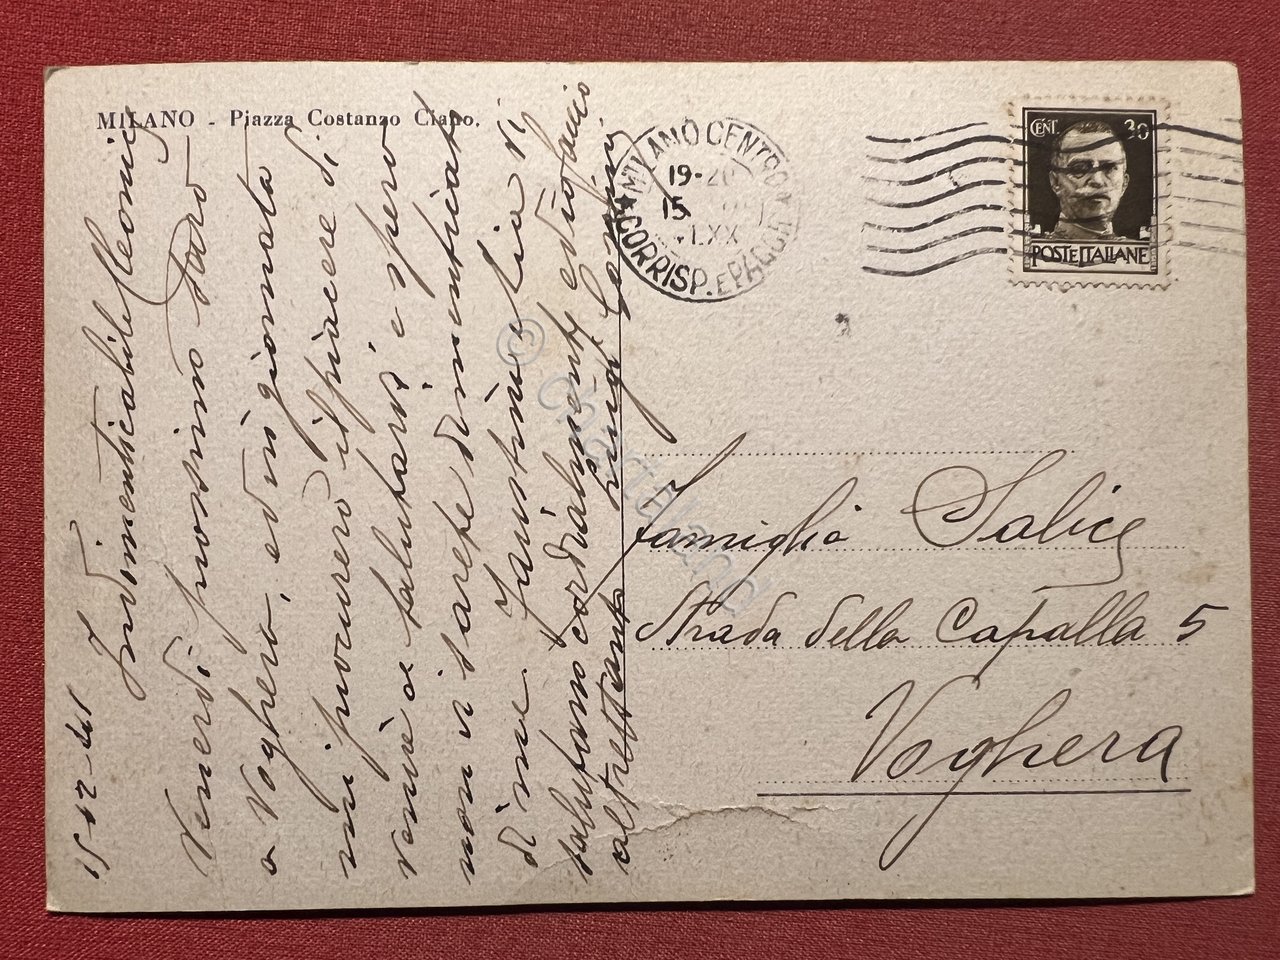 MILANO - Piazza Costanzo Ciano.
Indimenticabile Cleonice
Venerdì prossimo sarò
a Voghera, ed in giornata
mi procurerò il piacere di
venire a salutarvi e spero
non vi sarete dimenticati
di me. Faustino Lia vi
salutano cordialmente ed io faccio
altrettanto Luigi
MILANO CENTRO
19-20
15
XX
CORRISP. E PACCHI
CENT. 30
POSTE ITALIANE
Famiglia Salice
Strada della Capalla 5
Voghera
© chartaland